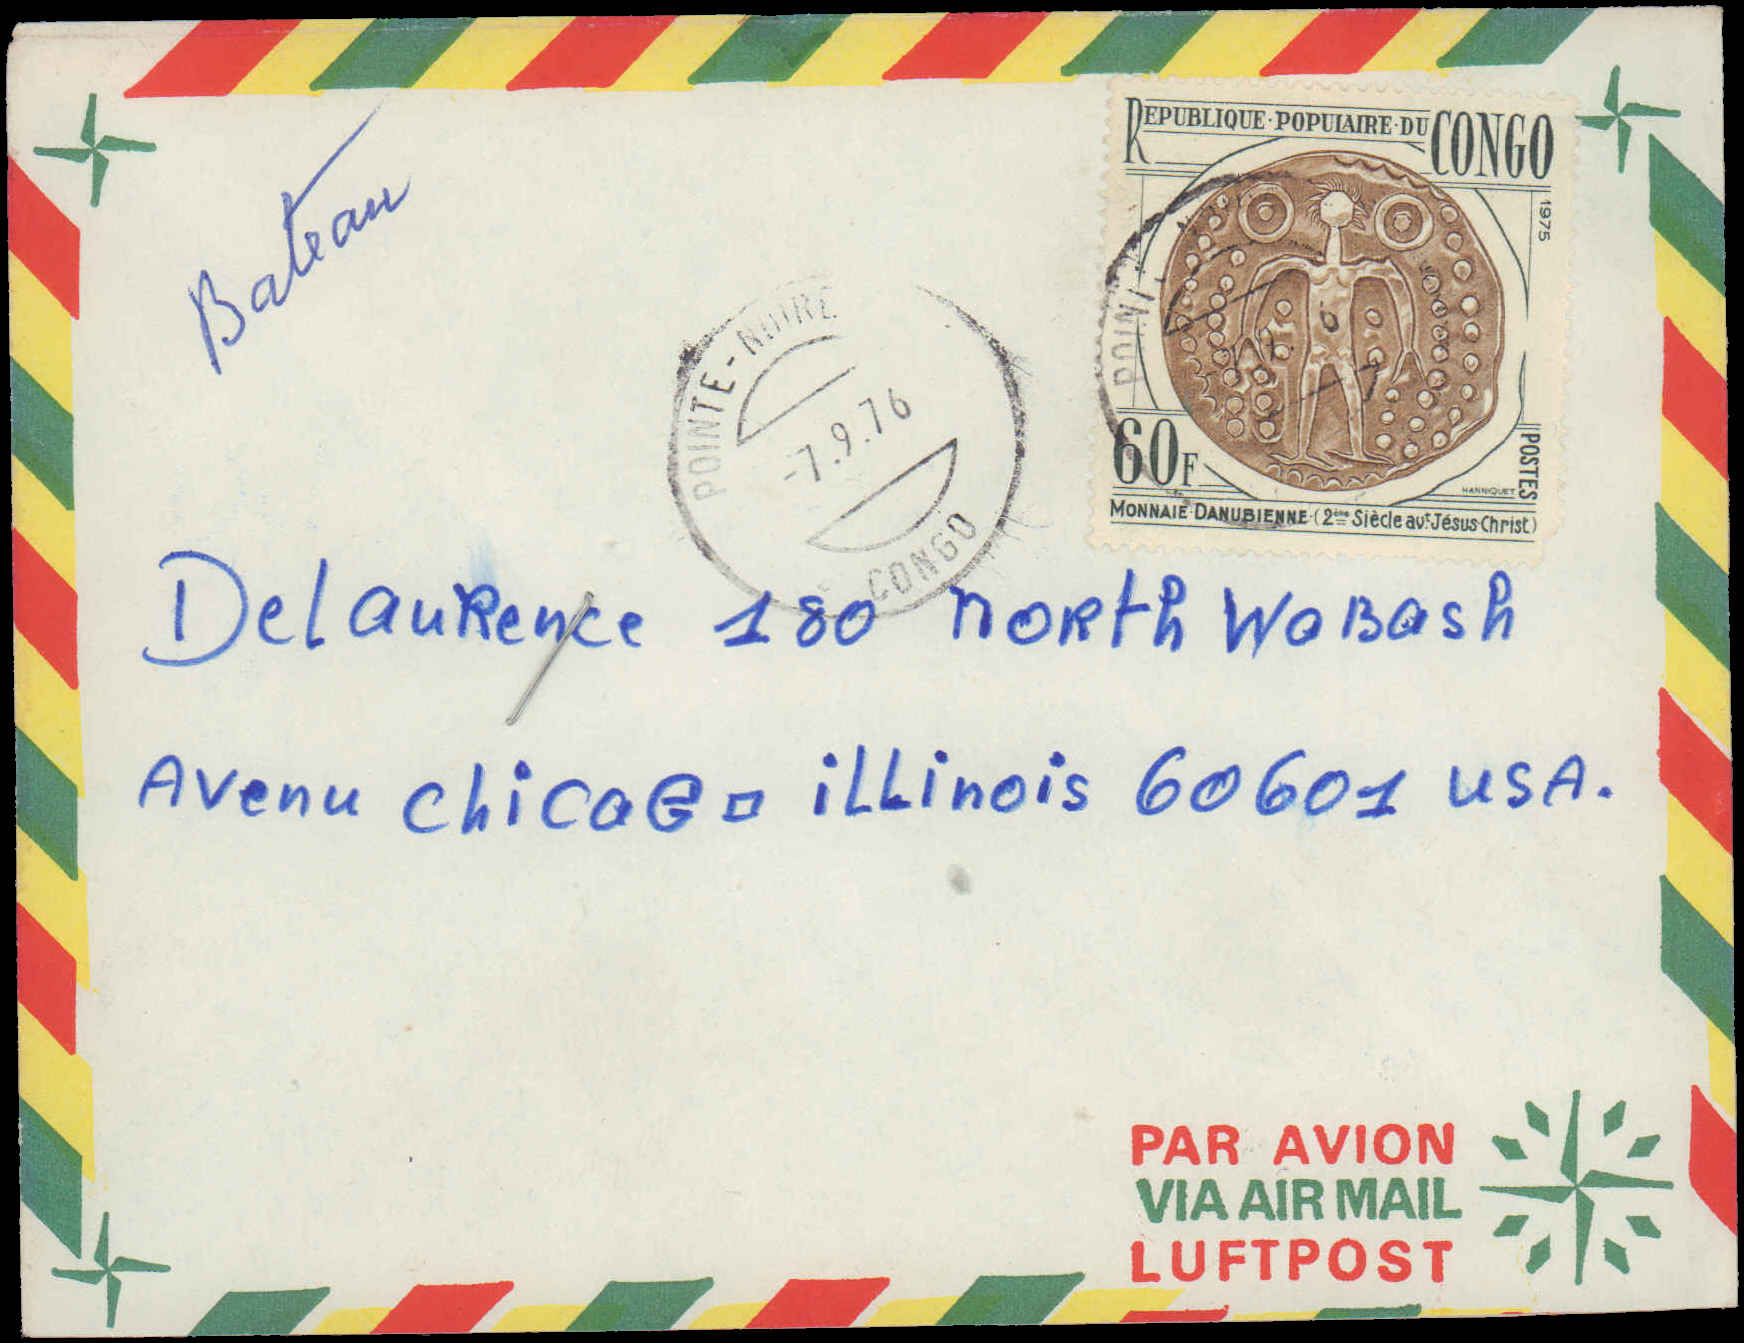 Bateau
REPUBLIQUE·POPULAIRE·DU CONGO
1975
60F
POSTES
HANNIQUET
MONNAIE·DANUBIENNE·(2ème Siècle avt·Jésus·Christ)
POINTE-NOIRE
-7.9.76
CONGO
POINT
DeLauRence 180 noRth WaBash
Avenu chicaGo iLLinois 60601 USA.
PAR AVION
VIA AIR MAIL
LUFTPOST